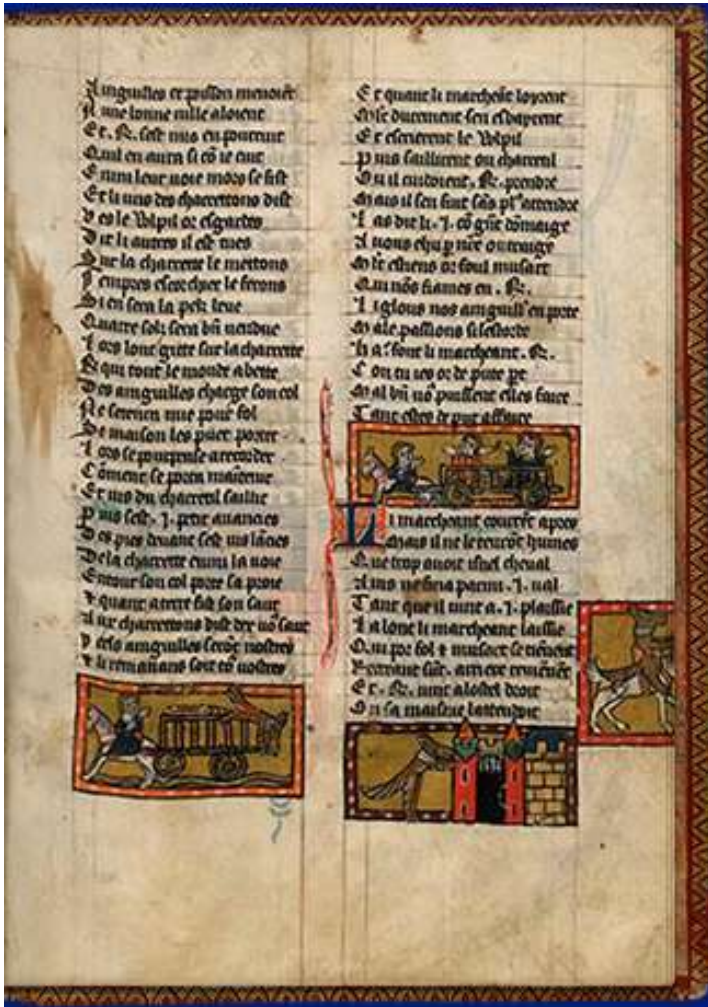 Anguilles et poisson menoiēt
A une bonne uille aloient
Et . R. sest mis en pourtruit
Quil en aura si cō ie cuit
Enmi leur uoie mors se fist
Et li uns des charretons dist
Ves le Volpil or esgardes
Dit li autres il est tues
Sur la charrette le mettons
Tempres escorchier le ferons
Si en sera la pel leue
Quatre solz sera bñ uendue
Lors lont gete sur la charrette
R qui tout le monde abette
Des anguilles charge son col
Ne se tenra mie pour fol
De maison les puet porter
Lors se pourpense a retorder
Cōment se porra maītenir
Et uis du charretil saillir
Puis sest . I. petit auancies
Des pies deuant sest ius lācies
De la charrette enmi la uoie
Entour son col porte sa proie
⁊ quant a terre fist son saut
Aux charretons dist dex uo⁹ saut
Cels anguilles serōt nostres
⁊ li remanans soit tō uostres
Et quant li marcheāt loyrent
Mlt durement sen esbayrent
Et escrierent le Volpil
Puis saillirent ou charretil
Qu il cuidoient . R. prendre
Mais il sen fuit sās pl⁹ attendre
Las dit li . I. cō gñt dōmaige
Auons ehu ꝑ nr̄e outraige
Mlt estiens or foul musart
Qui nos fiames en . R.
Li glous nos anguill' en porte
Male passions
font li marcheant . R.
Con tu ies or de pute
Mal bñ uo⁹ puissent elles faire
Tant estes de put affaire
Li marcheant courrēt apres
Mais il ne le tenrōt humes
Que trop auoit isnel cheual
Ains ne fina parmi . I. ual
Tant que il uint a . I. plaissie
La lont li marcheant laissie
Qui por fol ⁊ musart se tiēnent
Recreant sūt arriere reuiēnēt
Et . R. uint a lostel droit
On sa maisnie lattendoit